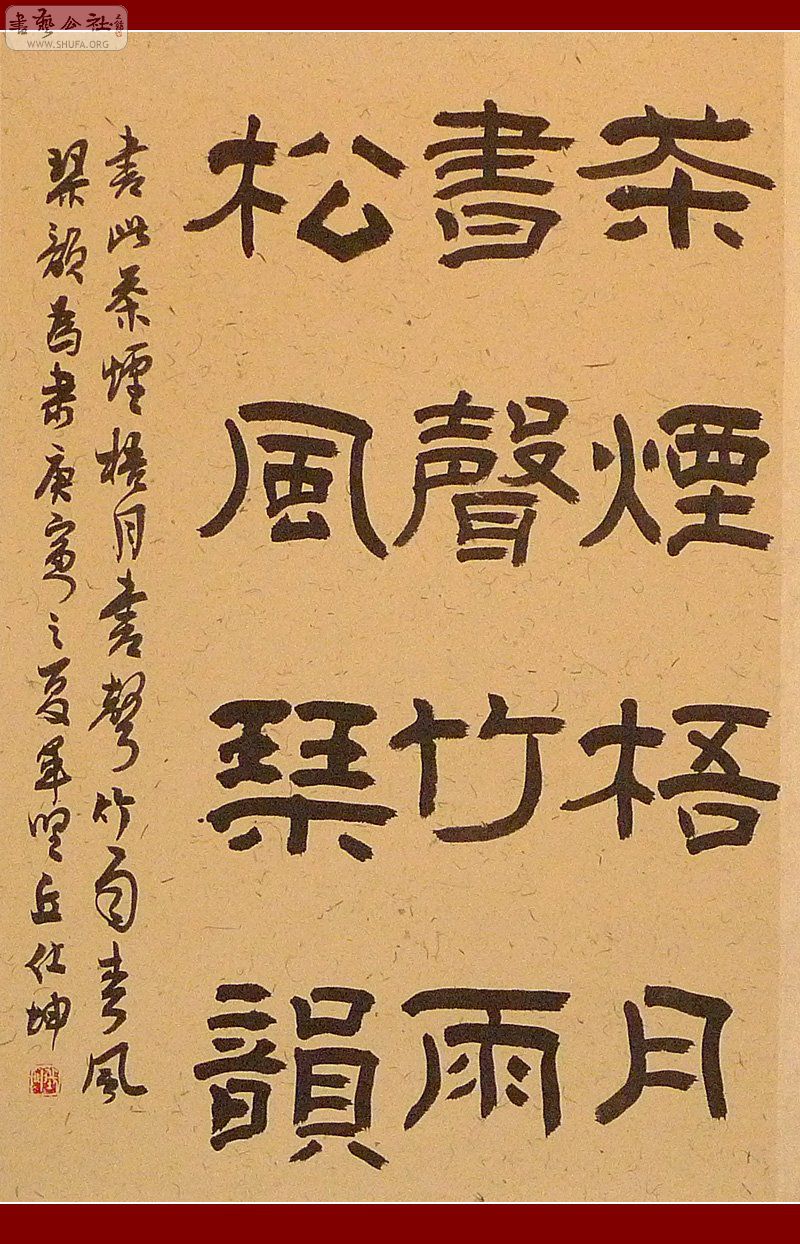 書藝公社
WWW.SHUFA.ORG
茶煙梧月
書聲竹雨
松風琹韻
書此茶煙梧月書聲竹雨風
琹韻為庚寅之夏丘仕坤